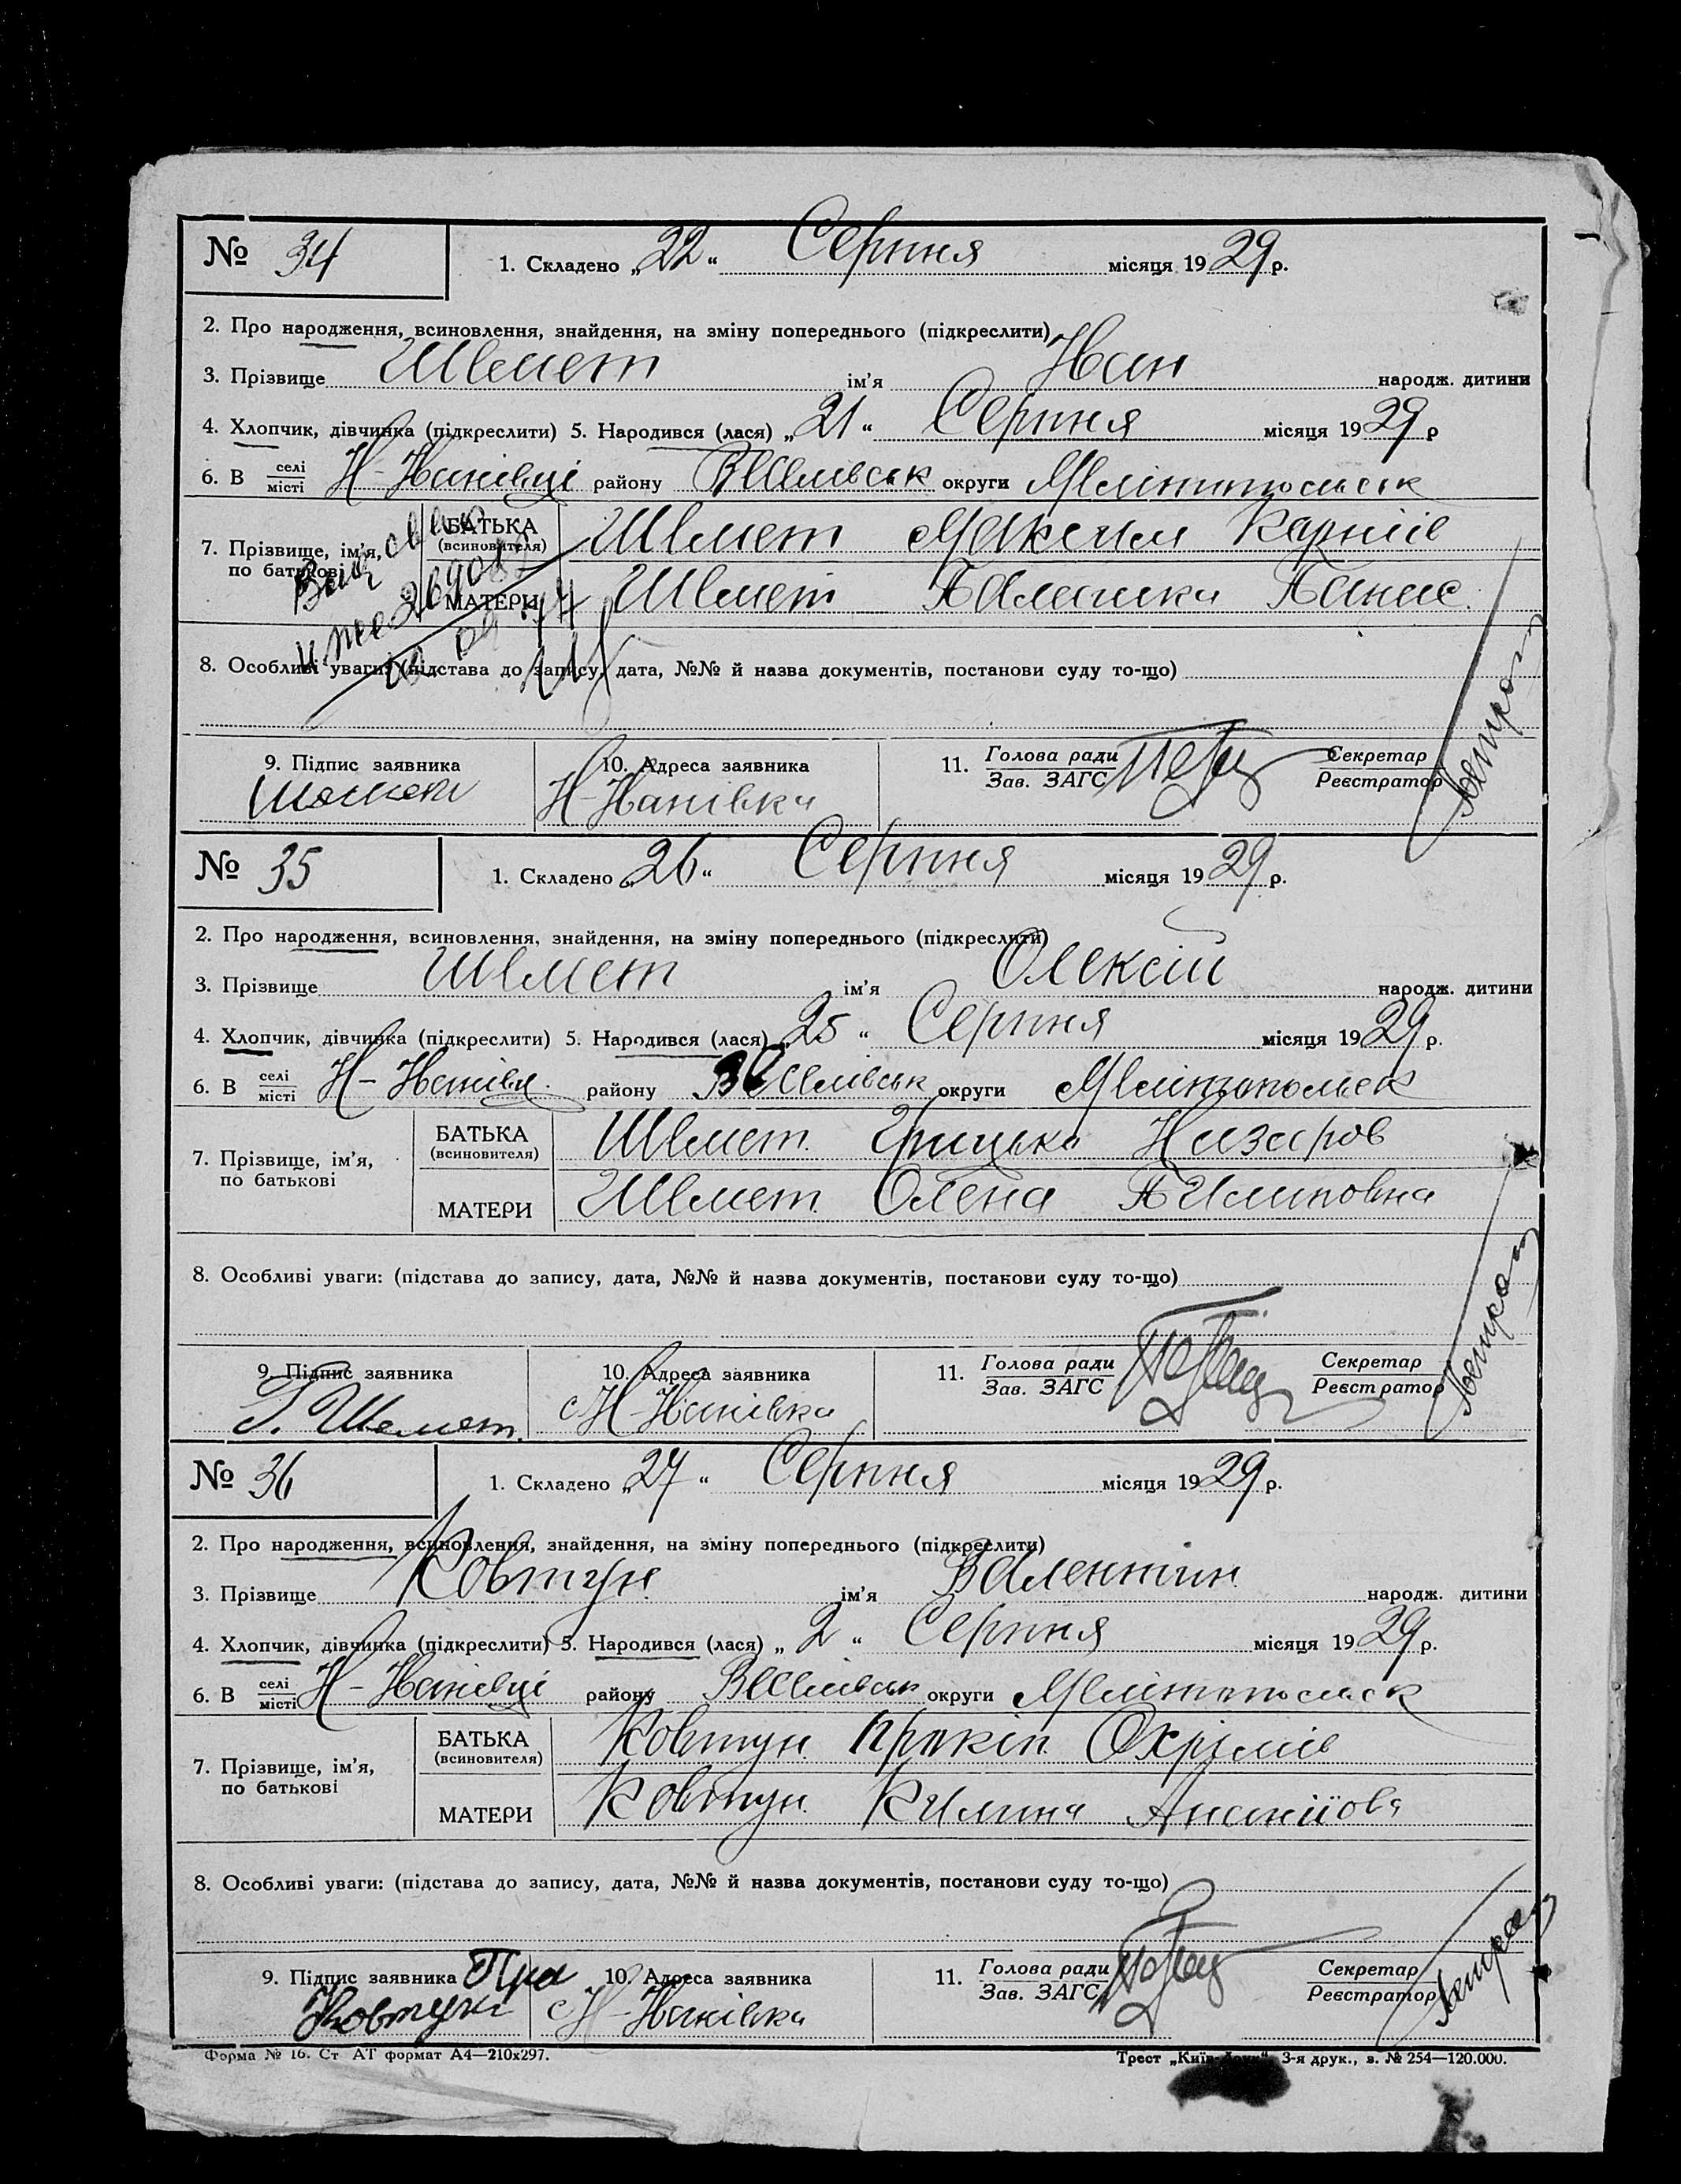 № 34
1. Складено „22“ Серпня місяця 1929 р.
2. Про народження, всиновлення, знайдення, на зміну попереднього (підкреслити)
3. Прізвище Шемет ім'я Іван народж. дитини
4. Хлопчик, дівчинка (підкреслити) 5. Народився (лася) „21“ Серпня місяця 1929 р
6. В селі місті Н-Іванівці району Веселівськ округи Мелітопольськ
7. Прізвище, ім'я, по батькові
БАТЬКА (всиновителя) Шемет Максим Карпів
МАТЕРИ Шемет Палашка Панас.
8. Особливі уваги: (підстава до запису, дата, №№ й назва документів, постанови суду то-що)
9. Підпис заявника 10. Адреса заявника 11. Голова ради Зав. ЗАГС Секретар Реєстратор
Шемет Н-Іванівка
№ 35
1. Складено „26“ Серпня місяця 1929 р.
2. Про народження, всиновлення, знайдення, на зміну попереднього (підкреслити)
3. Прізвище Шемет ім'я Олексій народж. дитини
4. Хлопчик, дівчинка (підкреслити) 5. Народився (лася) „25“ Серпня місяця 1929 р.
6. В селі місті Н-Іванівц. району Веселівськ округи Мелітопольск
7. Прізвище, ім'я, по батькові
БАТЬКА (всиновителя) Шемет. Грицько Назаров
МАТЕРИ Шемет. Олена Пилиповна
8. Особливі уваги: (підстава до запису, дата, №№ й назва документів, постанови суду то-що)
9. Підпис заявника 10. Адреса заявника 11. Голова ради Зав. ЗАГС Секретар Реєстратор
Г. Шемет. с Н-Іванівка
№ 36
1. Складено „27“ Серпня місяця 1929 р.
2. Про народження, всиновлення, знайдення, на зміну попереднього (підкреслити)
3. Прізвище Ковтун ім'я Валентин народж. дитини
4. Хлопчик, дівчинка (підкреслити) 5. Народився (лася) „2“ Серпня місяця 1929 р.
6. В селі місті Н-Іванівці району Веселівськ округи Мелітопольськ
7. Прізвище, ім'я, по батькові
БАТЬКА (всиновителя) Ковтун Прокіп Охрімів
МАТЕРИ Ковтун Килина
8. Особливі уваги: (підстава до запису, дата, №№ й назва документів, постанови суду то-що)
9. Підпис заявника 10. Адреса заявника 11. Голова ради Зав. ЗАГС Секретар Реєстратор
Ковтун с Н-Іванівка
Форма № 16. Ст АТ формат А4—210х297. Трест „Київ-Друк“, 3-я друк., з. № 254—120.000.